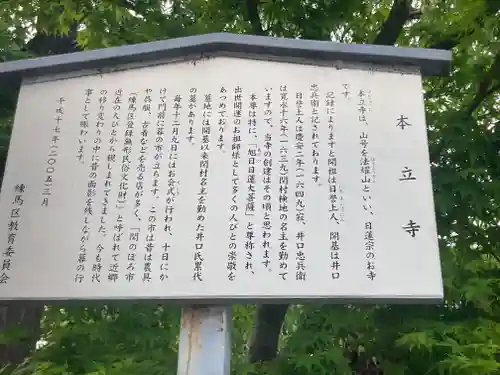 本立寺
本立寺は、山号を法耀山といい、日蓮宗のお寺
です。
記録によりますと開祖は日誉上人、開基は井口
忠兵衛と記されております。
日誉上人は慶安二年(一六四九)寂、井口忠兵衛
は寛永十六年(一六三九)関村検地の名主を勤めて
いますので、当寺の創建はその頃と思われます。
本尊は特に、「旭日日蓮大菩薩」と尊称され、
出世開運のお祖師様として多くの人びとの崇敬を
あつめております。
墓地には開基以来関村名主を勤めた井口氏累代
の墓があります。
毎年十二月九日にはお会式が行われ、十日にか
けて門前に暮の市が立ちます。この市は昔は農具
や呉服、古着などを売る店が多く、「関のぼろ市
(練馬区登録無形民俗文化財)」と呼ばれて近郷
近在の人びとから親しまれてきました。今も時代
の移り変わりの中に昔の面影を残しながら暮の行
事として賑わいます。
平成十七年(二〇〇五)三月
練馬区教育委員会